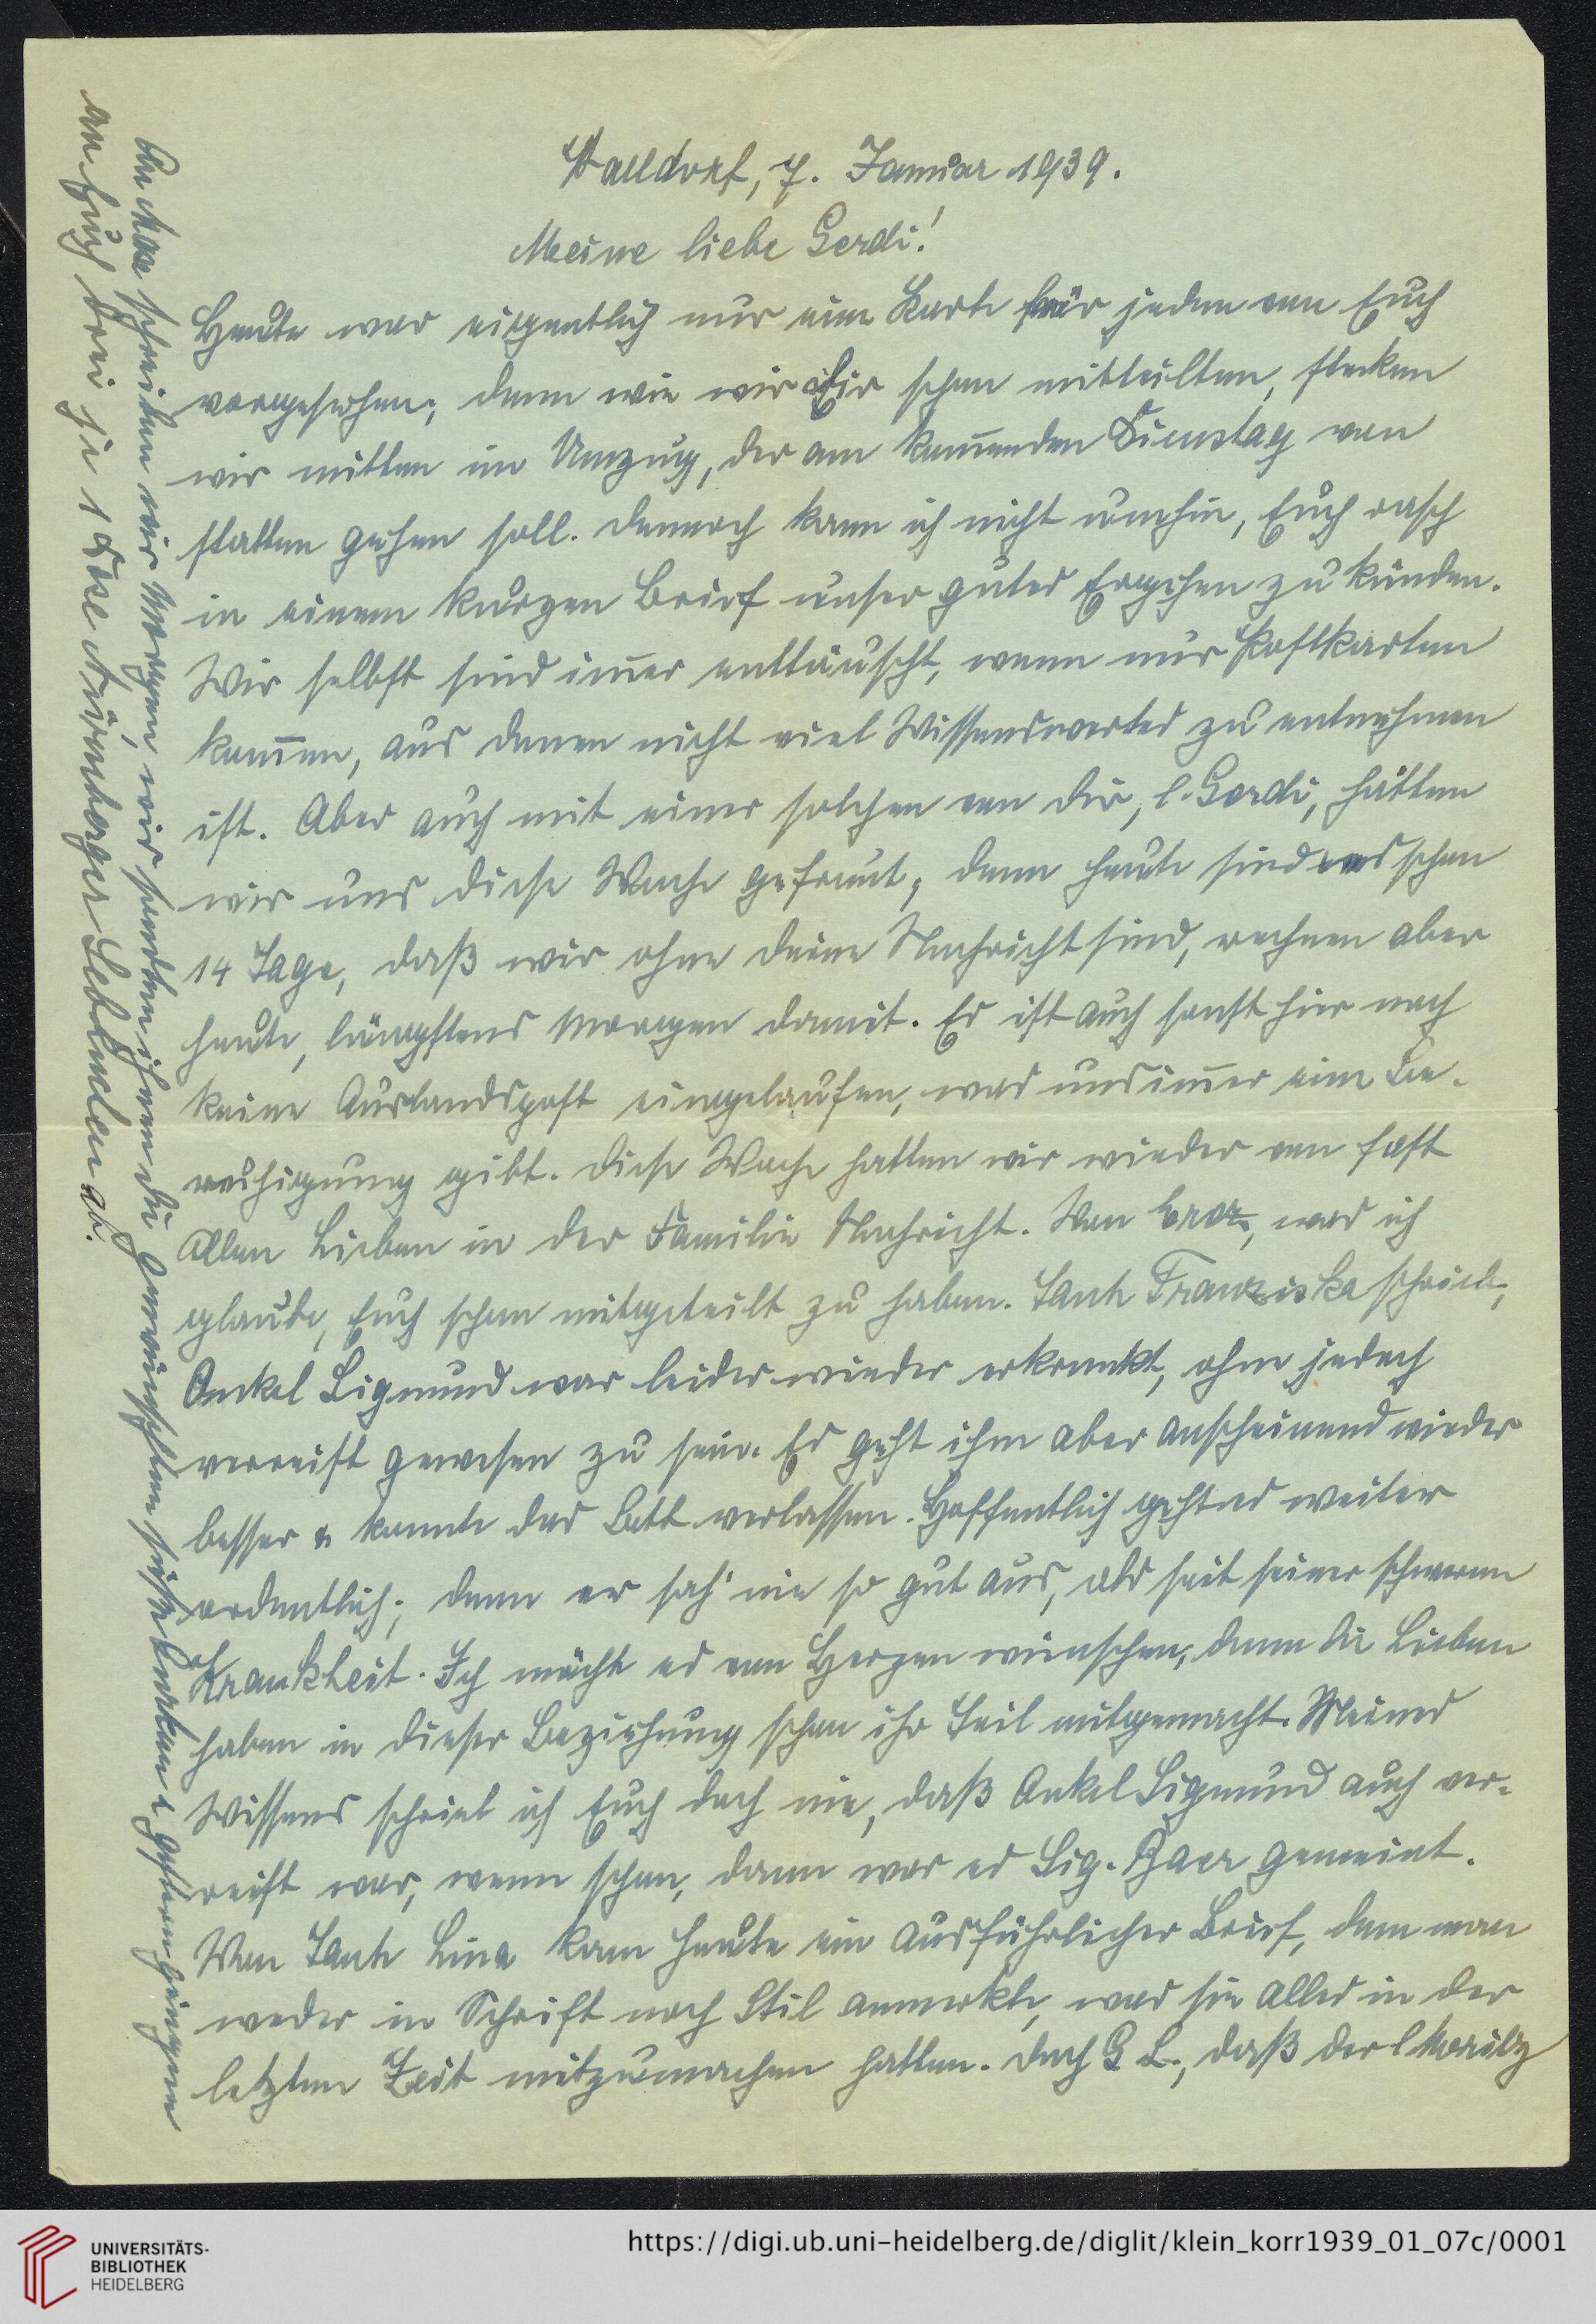 Walldorf, 7. Januar 1939.
Meine liebe Gerdi!
Heute war eigentlich nur eine Karte für jeden von Euch
vorgesehen; denn wie wir Dir schon mitteilten, stecken
wir mitten im Umzug, der am kom̅enden Dienstag von
statten gehen soll. Dennoch kann ich nicht umhin, Euch rasch
in einem kurzen Brief unser gutes Ergehen zu künden.
Wir selbst sind im̅er enttäuscht, wenn nur Postkarten
kom̅en, aus denen nicht viel Wissenswertes zu entnehmen
ist. Aber auch mit einer solchen von Dir, l. Gerdi, hätten
wir uns diese Woche gefreut, denn heute sind es schon
14 Tage, daß wir ohne Deine Nachricht sind, rechnen aber
heute, längstens Morgen damit. Es ist auch sonst hier noch
keine Auslandspost eingelaufen, was uns im̅er eine Be-
ruhigung gibt. Diese Woche hatten wir wieder von fast
Allen Lieben in der Familie Nachricht. Von was ich
glaube, Euch schon mitgeteilt zu haben. Tante Franziska schrieb,
Onkel Sigmund war leider wieder erkrankt, ohne jedoch
verreist gewesen zu sein. Es geht ihm aber anscheinend wieder
besser & konnte das Bett verlassen. Hoffentlich geht es weiter
ordentlich; denn er sah nie so gut aus, als seit seiner schweren
Krankheit. Ich möchte es von Herzen wünschen, denn die Lieben
haben in dieser Beziehung schon ihr Teil mitgemacht. Meines
Wissens schrieb ich Euch doch nie, daß Onkel Sigmund auch ver-
reist war, wenn schon, dann war es Sig. Baer gemeint.
Von Tante Lina kam heute ein ausführlicher Brief, dem man
weder in Schrift noch Stil anmerkte, was sie Alles in der
letzten Zeit mitzumachen hatten. Doch G. L., daß der l. Moritz
schreiben wir Morgen, wir sandten ihnen die gewünschten & gestern gingen
an Euch drei je 1 Dose Nürnberger Lebkuchen ab.
UNIVERSITÄTS-
BIBLIOTHEK
HEIDELBERG
https://digi.ub.uni-heidelberg.de/diglit/klein_korr1939_01_07c/0001